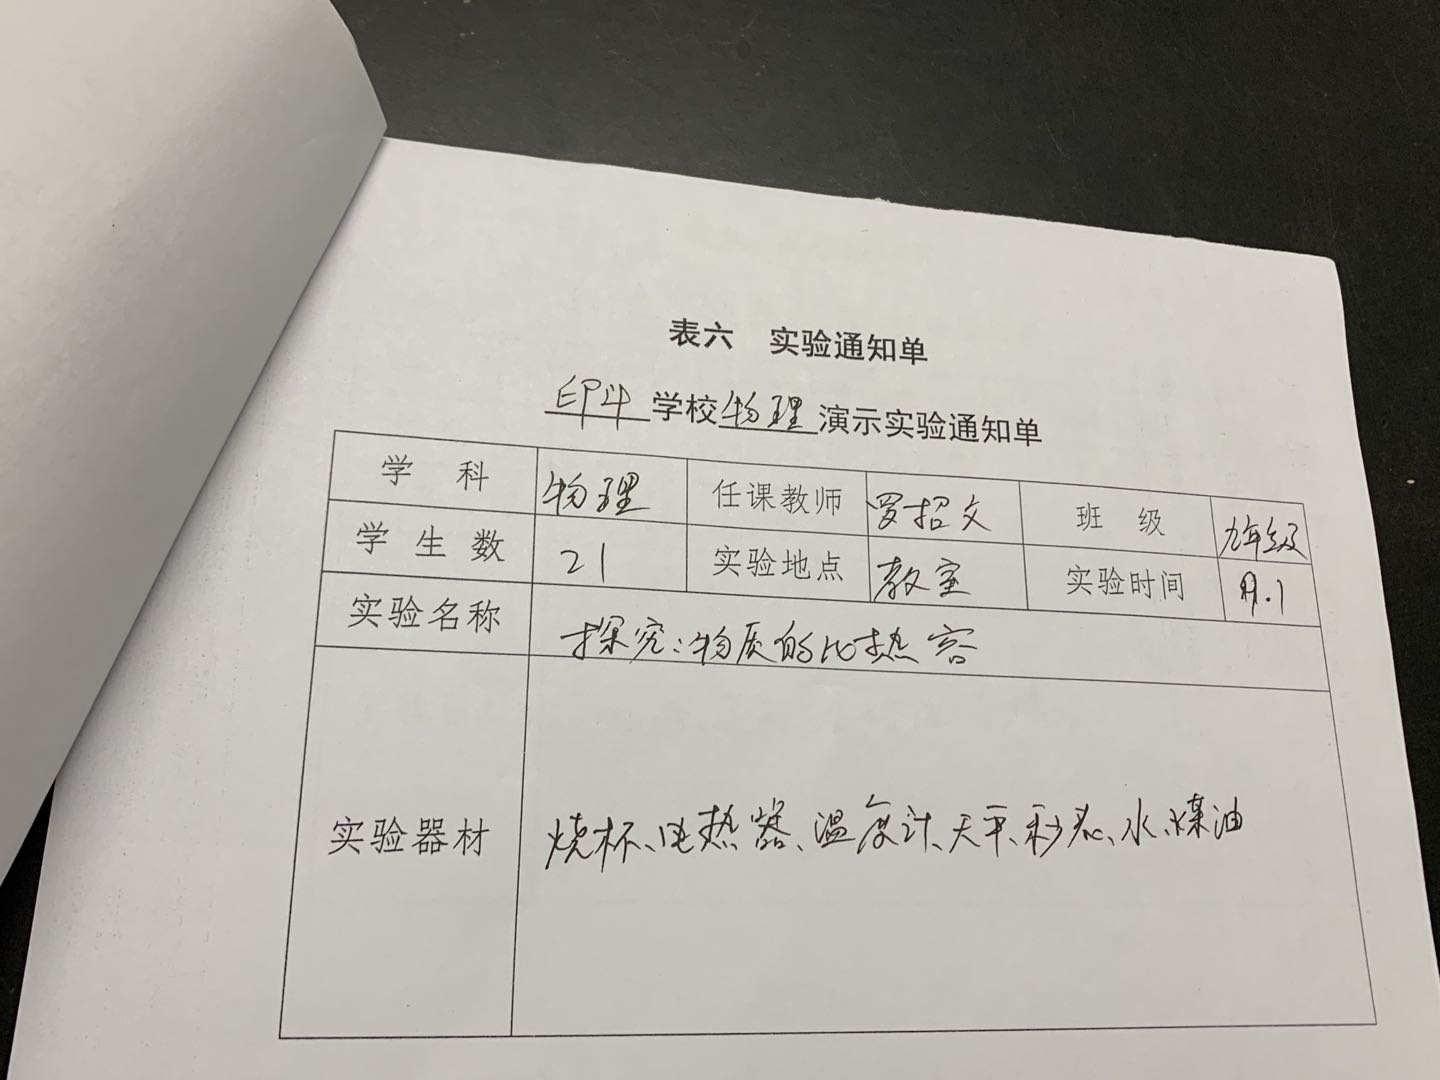 表六 实验通知单
印斗学校物理演示实验通知单
学 科 物理 任课教师 罗招文 班 级 九年级
学 生 数 21 实验地点 教室 实验时间 9.1
实验名称 探究:物质的比热容
实验器材 烧杯、电热器、温度计、天平、秒表、水、煤油